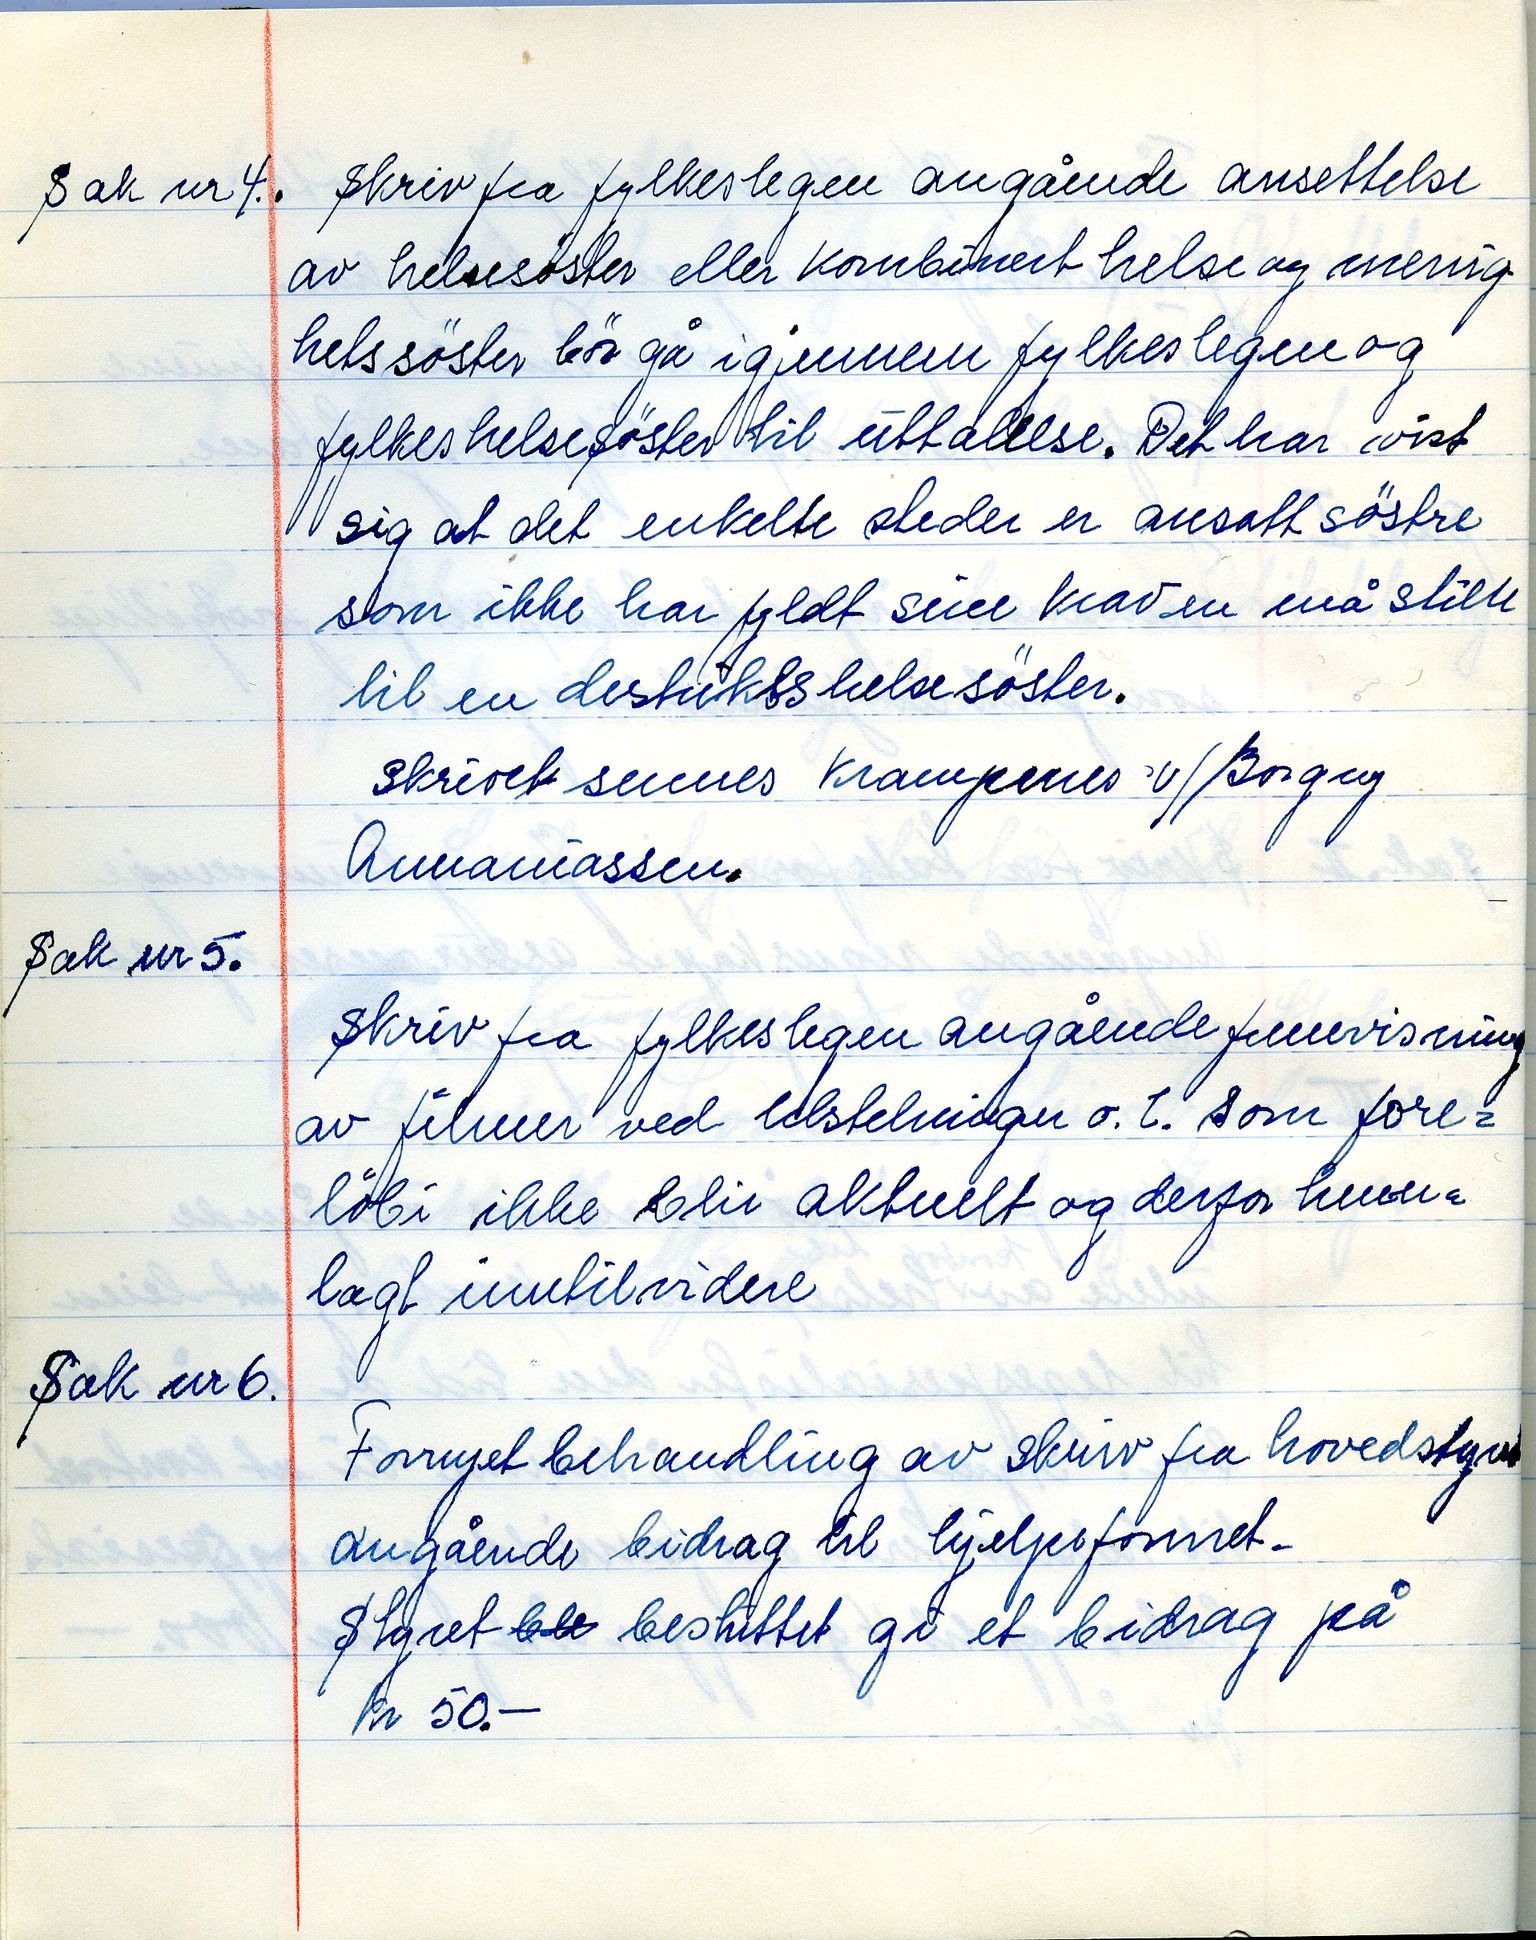 Sak nr 4. Skriv fra fylkeslegen angående ansettelse
av helsesöster eller kombinert helse og menig
hetssöster bör gå igjennem fylkeslegen og
fylkeshelsesöster til uttalelse. Det har vist
sig at det enkelte steder er ansatt söstre
som ikke har fyldt sine krav en må stille
til en destrikts helsesöster.
Skrivet sennes Krampenes v/Borgny
Annaniassen.
Sak nr 5.
Skriv fra fylkeslegen angående
av filmer ved tilstelninger o.l. som fore=
löbi ikke blir aktuelt og derfor henn=
lagt inntilvidere
Sak nr 6.
Fornyet behandling av skriv fra hovedstyret
angående bidrag til hjelpefonnet-
Styret ble besluttet gi et bidrag på
kr 50.-